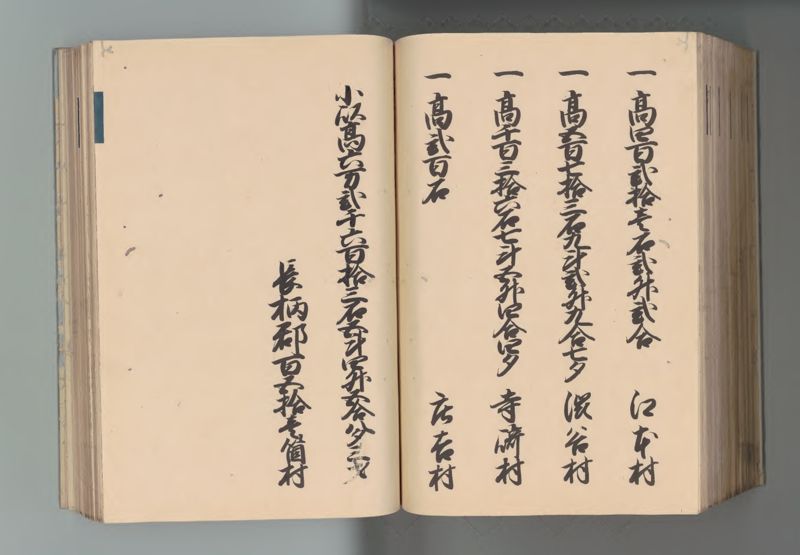 一高四百弐拾壱石弐升弐合 江本村
一高五百七拾三石九斗弐升九合七夕 渋谷村
一高千百三拾六石七斗五升四合四夕 寺崎村
一高弐百石 庄吉村
小以高六万弐千六百拾三石五斗四升五合
長柄郡百五拾壱箇村